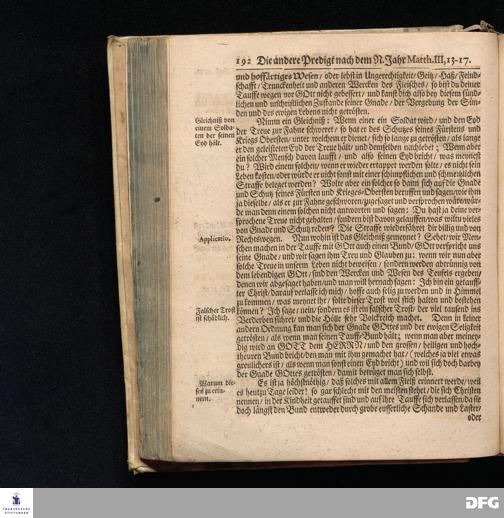 192 Die andere Predigt nach dem N. Jahr Matth. III, 13-17.
und hoffärtiges Wesen / oder lebst in Ungerechtigkeit / Geitz / Haß / Feind-
schafft / Trunckenheit und anderen Wercken des Fleisches / so bist du deiner
Tauffe wegen vor GOtt nicht gebessert / und kanst dich also bey diesem sünd-
lichen und unchristlichen Zustande seiner Gnade / der Vergebung der Sün-
den und des ewigen Lebens nicht getrösten.
Gleichniß von
einem Solda-
ten der seinen
Eyd hält.
Nimm ein Gleichniß: Wenn einer ein Soldat wird / und den Eyd
der Treue zur Fahne schweret / so hat er des Schutzes seines Fürstens und
Kriegs Obersten / unter welchem er dienet / sich so lange zu getrösten / als lange
er den geleisteten Eyd der Treue hält / und demselben nachlebet; Wenn aber
ein solcher Mensch davon laufft / und also seinen Eyd bricht / was meynest
du? Wird einem solchen / wenn er wieder ertappet werden solte / es nicht sein
Leben kosten / oder würde er nicht sonst mit einer schimpflichen und schmertzlichen
Straffe beleget werden? Wolte aber ein solcher so dann sich auf die Gnade
und Schutz seines Fürsten und Krieges-Obersten beruffen und sagen / wie ihm
ja dieselbe / als er zur Fahne geschworen / zugesaget und versprochen wäre / wür-
de man denn einem solchen nicht antworten und sagen: Du hast ja deine ver-
sprochene Treue nicht gehalten / sondern bist davon gelauffen / was wiltu vieles
von Gnade und Schutz reden? Die Straffe wiederfähret dir billig und von
Applicatio.
Rechtswegen. Nun wohin ist das Gleichniß gemeynet? Sehet / wir Men-
schen machen in der Tauffe mit GOtt auch einen Bund / GOtt verspricht uns
seine Gnade / und wir sagen ihm Treu und Glauben zu: wenn wir nun aber
solche Treue in unserm Leben nicht beweisen / sondern werden abtrünnig von
dem lebendigen GOtt / sind den Wercken und Wesen des Teufels ergeben /
denen wir abgesaget haben / und man will hernach sagen: Ich bin ein getauff-
ter Christ / darauf verlasse ich mich / hoffe auch selig zu werden und in Himmel
zu kommen / was meynet ihr / solte dieser Trost wol stich halten und bestehen
Falscher Trost
ist schädlich.
können? Ich sage / nein / sondern es ist ein falscher Trost / der viel tausend ins
Verderben führet / und die Hölle sehr Volckreich machet. Denn in keiner
andern Ordnung kan man sich der Gnade GOttes und der ewigen Seligkeit
getrösten / als wenn man seinen Tauff-Bund hält; wenn man aber meiney-
dig wird an GOTT dem HERRN / und den grossen / heiligen und hoch-
theuren Bund bricht / den man mit ihm gemachet hat / (welches ja viel etwas
greulichers ist / als wenn man sonst einen Eyd bricht) und wil sich doch darbey
der Gnade GOttes getrösten / damit betrüget man sich selbst.
Warum die-
ses zu erin-
nern.
Es ist ja höchstnöthig / daß solches mit allem Fleiß erinnert werde / weil
es heutzu Tage leider! so gar schlecht mit den meisten stehet / die sich Christen
nennen / in der Kindheit getauffet sind und auf ihre Tauffe sich verlassen / da sie
doch längst den Bund entweder durch grobe eusserliche Schande und Laster /
oder
FRANCKESCHE
STIFTUNGEN
DFG